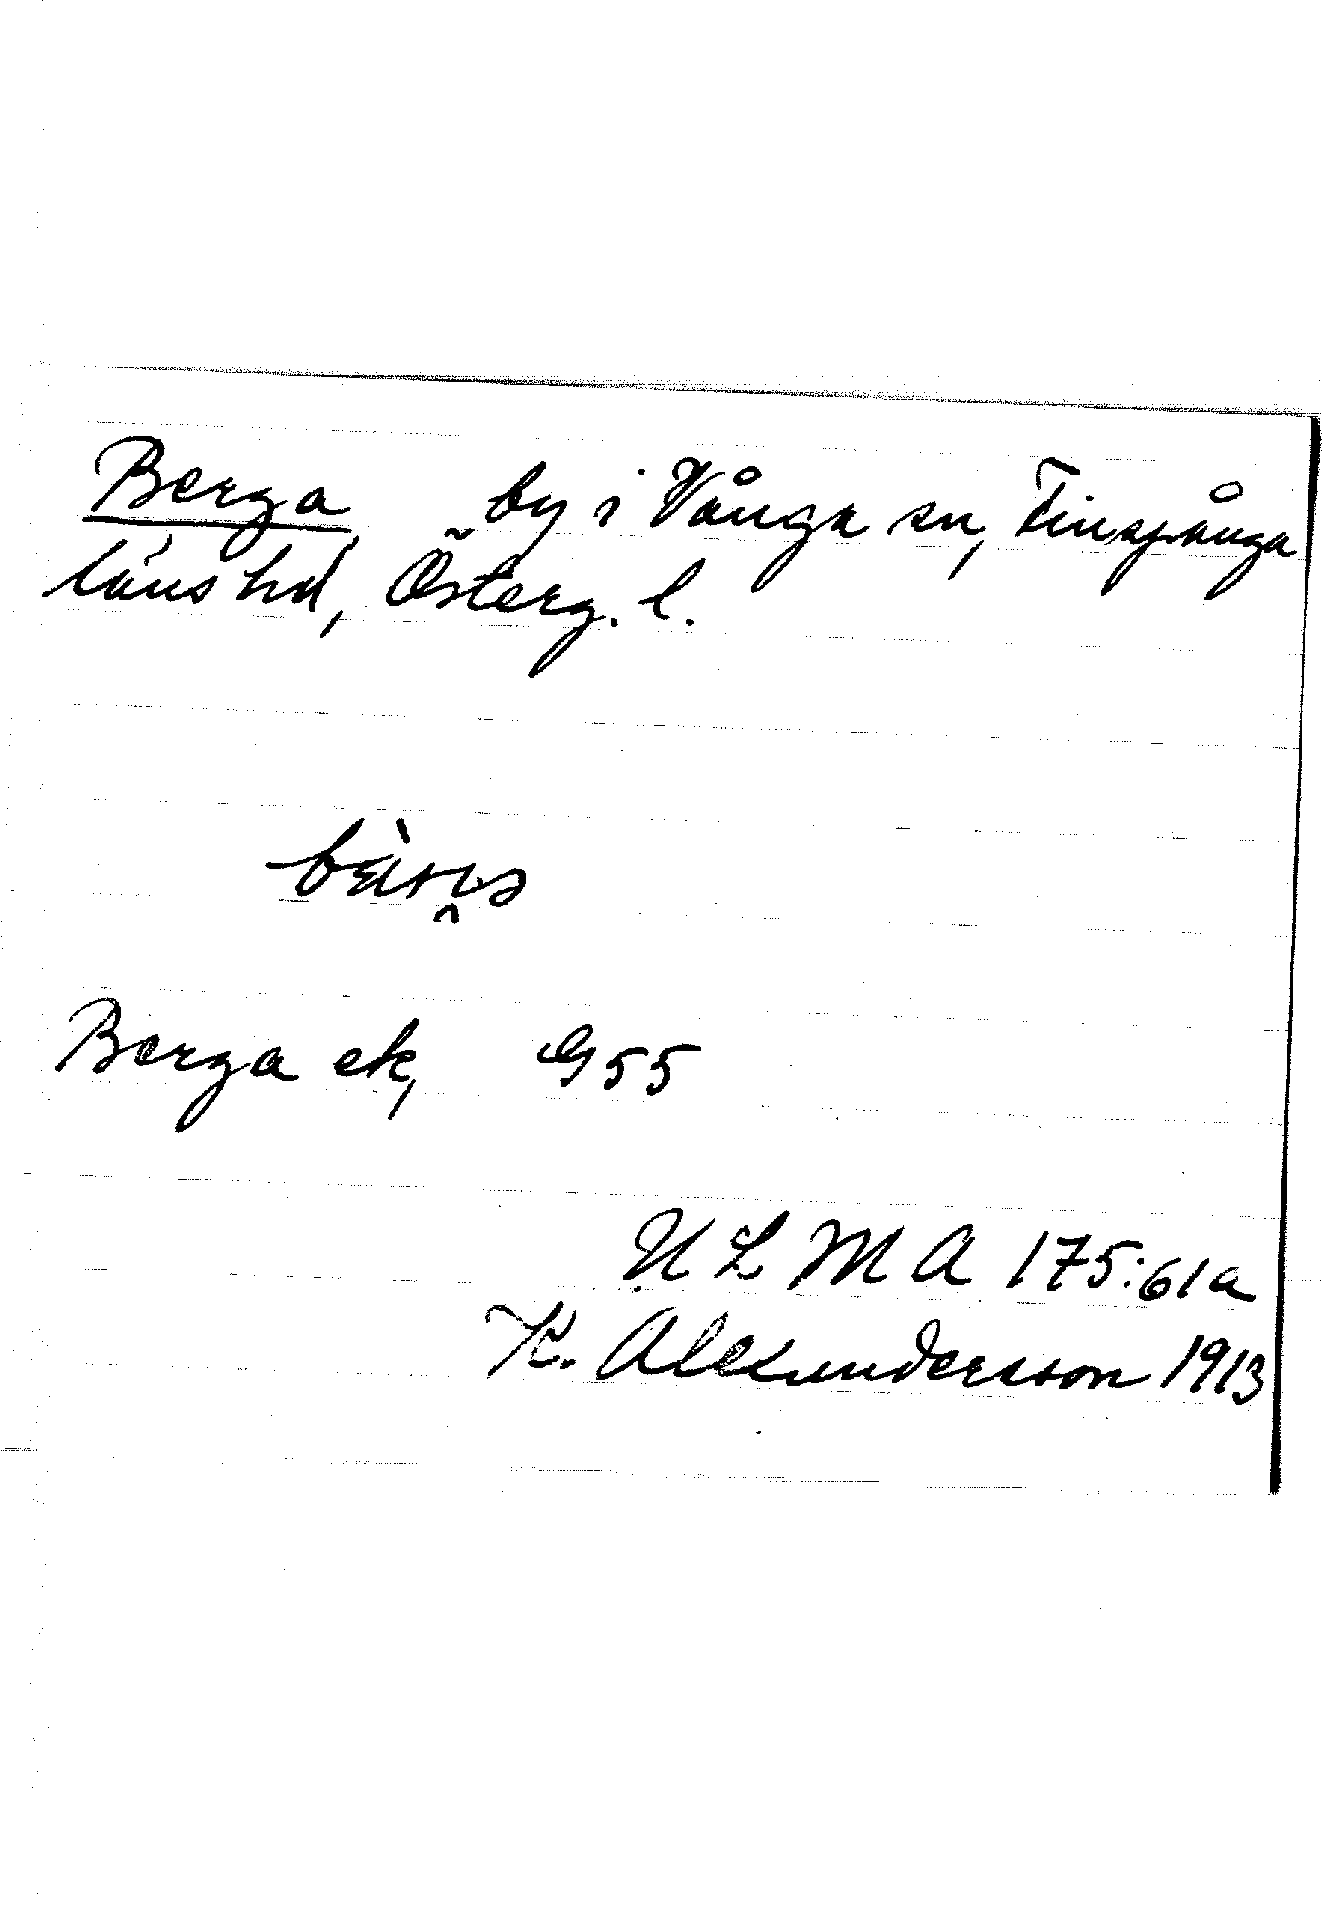 Berga by i Vånga sn, Finspånga
läns hd, Österg. l.
Berga ek, G 55
U L M A 175:61a
K. Alexandersson 1913